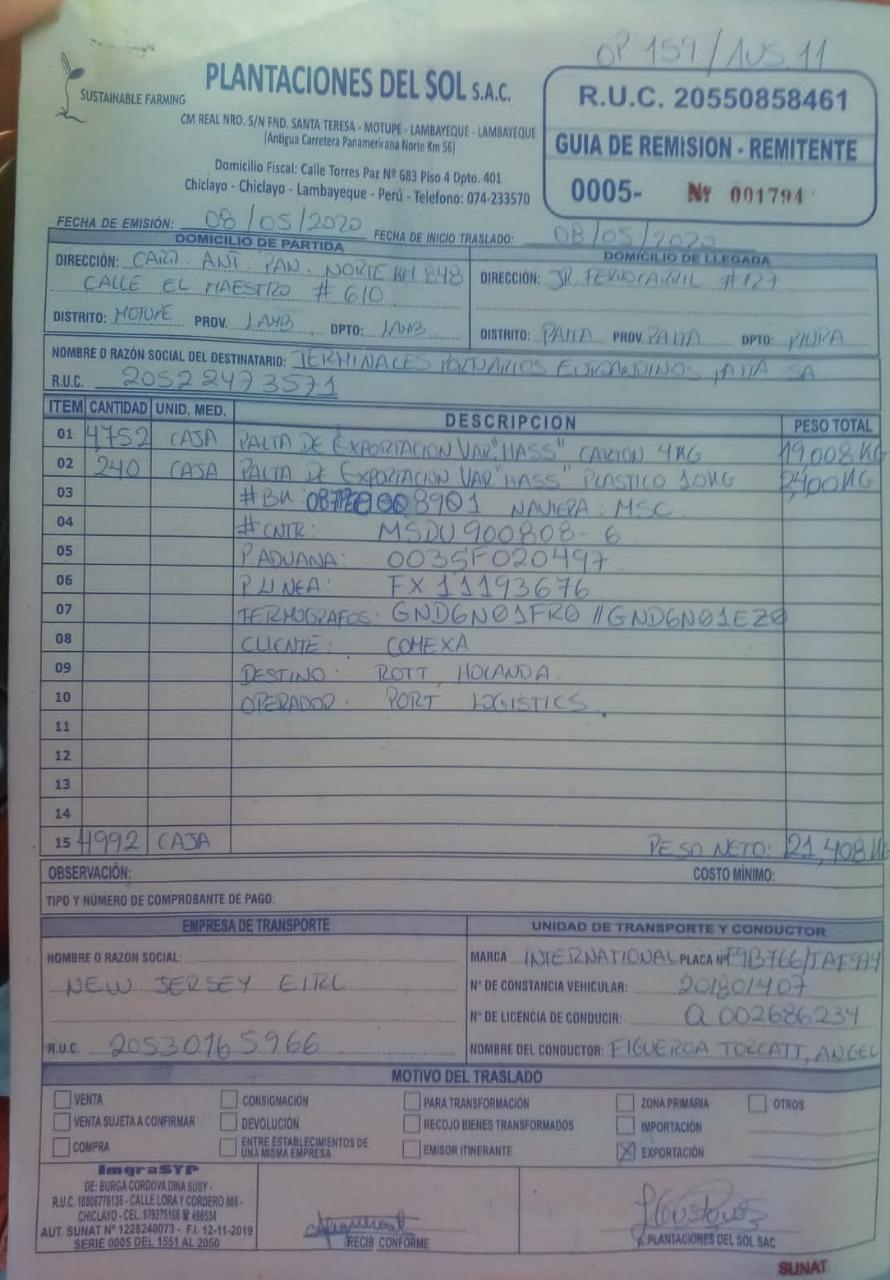 OP. 159 / AUS 11
SUSTAINABLE FARMING
PLANTACIONES DEL SOL S.A.C.
CM REAL NRO. S/N FND. SANTA TERESA - MOTUPE - LAMBAYEQUE - LAMBAYEQUE
(Antigua Carretera Panamericana Norte Km 56)
Domicilio Fiscal: Calle Torres Paz Nº 683 Piso 4 Dpto. 401
Chiclayo - Chiclayo - Lambayeque - Perú - Telefono: 074-233570
R.U.C. 20550858461
GUIA DE REMISION - REMITENTE
0005- Nº 001794
FECHA DE EMISIÓN: 08/05/2020 FECHA DE INICIO TRASLADO: 08/05/2020
DOMICILIO DE PARTIDA
DIRECCIÓN: CARR. ANT. PAN. NORTE KM 848
CALLE EL MAESTRO # 610
DISTRITO: MOTUPE PROV. LAMB DPTO: LAMB
DOMICILIO DE LLEGADA
DIRECCIÓN: JR FERROCARRIL #127
DISTRITO: PAITA PROV. PAITA DPTO: PIURA
NOMBRE O RAZÓN SOCIAL DEL DESTINATARIO: TERMINALES PORTUARIOS EUROANDINOS PAITA SA
R.U.C. 20522473571
ITEM CANTIDAD UNID. MED. DESCRIPCION PESO TOTAL
01 4752 CAJA PALTA DE EXPORTACION VAR "HASS" CARTON 4KG 19,008 KG
02 240 CAJA PALTA DE EXPORTACION VAR "HASS" PLASTICO 10KG 2,400 KG
03 #BK NAVIERA: MSC
04 #CNTR: MSDU900808-6
05 P.ADUANA: 0035F020497
06 P.LINEA: FX11193676
07 TERMOGRAFOS: GND6N01FR0 // GND6N01EZ0
08 CLIENTE: COMEXA
09 DESTINO: ROTT, HOLANDA
10 OPERADOR: PORT LOGISTICS.
11
12
13
14
15 4992 CAJA PESO NETO: 21,408 KG
OBSERVACIÓN: COSTO MÍNIMO:
TIPO Y NÚMERO DE COMPROBANTE DE PAGO:
EMPRESA DE TRANSPORTE
NOMBRE O RAZÓN SOCIAL:
NEW JERSEY EIRL
R.U.C. 20530165966
UNIDAD DE TRANSPORTE Y CONDUCTOR
MARCA INTERNATIONAL PLACA Nº
Nº DE CONSTANCIA VEHICULAR: 201801407
Nº DE LICENCIA DE CONDUCIR: Q 002686234
NOMBRE DEL CONDUCTOR: FIGUEROA TORCATT, ANGEL
MOTIVO DEL TRASLADO
VENTA CONSIGNACIÓN PARA TRANSFORMACIÓN ZONA PRIMARIA OTROS
VENTA SUJETA A CONFIRMAR DEVOLUCIÓN RECOJO BIENES TRANSFORMADOS IMPORTACIÓN
COMPRA ENTRE ESTABLECIMIENTOS DE UNA MISMA EMPRESA EMISOR ITINERANTE X EXPORTACIÓN
ImgraSYP
DE: BURGA CORDOVA DINA SUSY -
CALLE LORA Y CORDERO
AUT. SUNAT Nº 1228240073 - F.I. 12-11-2019
SERIE 0005 DEL 1551 AL 2050
RECIBI CONFORME
p. PLANTACIONES DEL SOL SAC
SUNAT